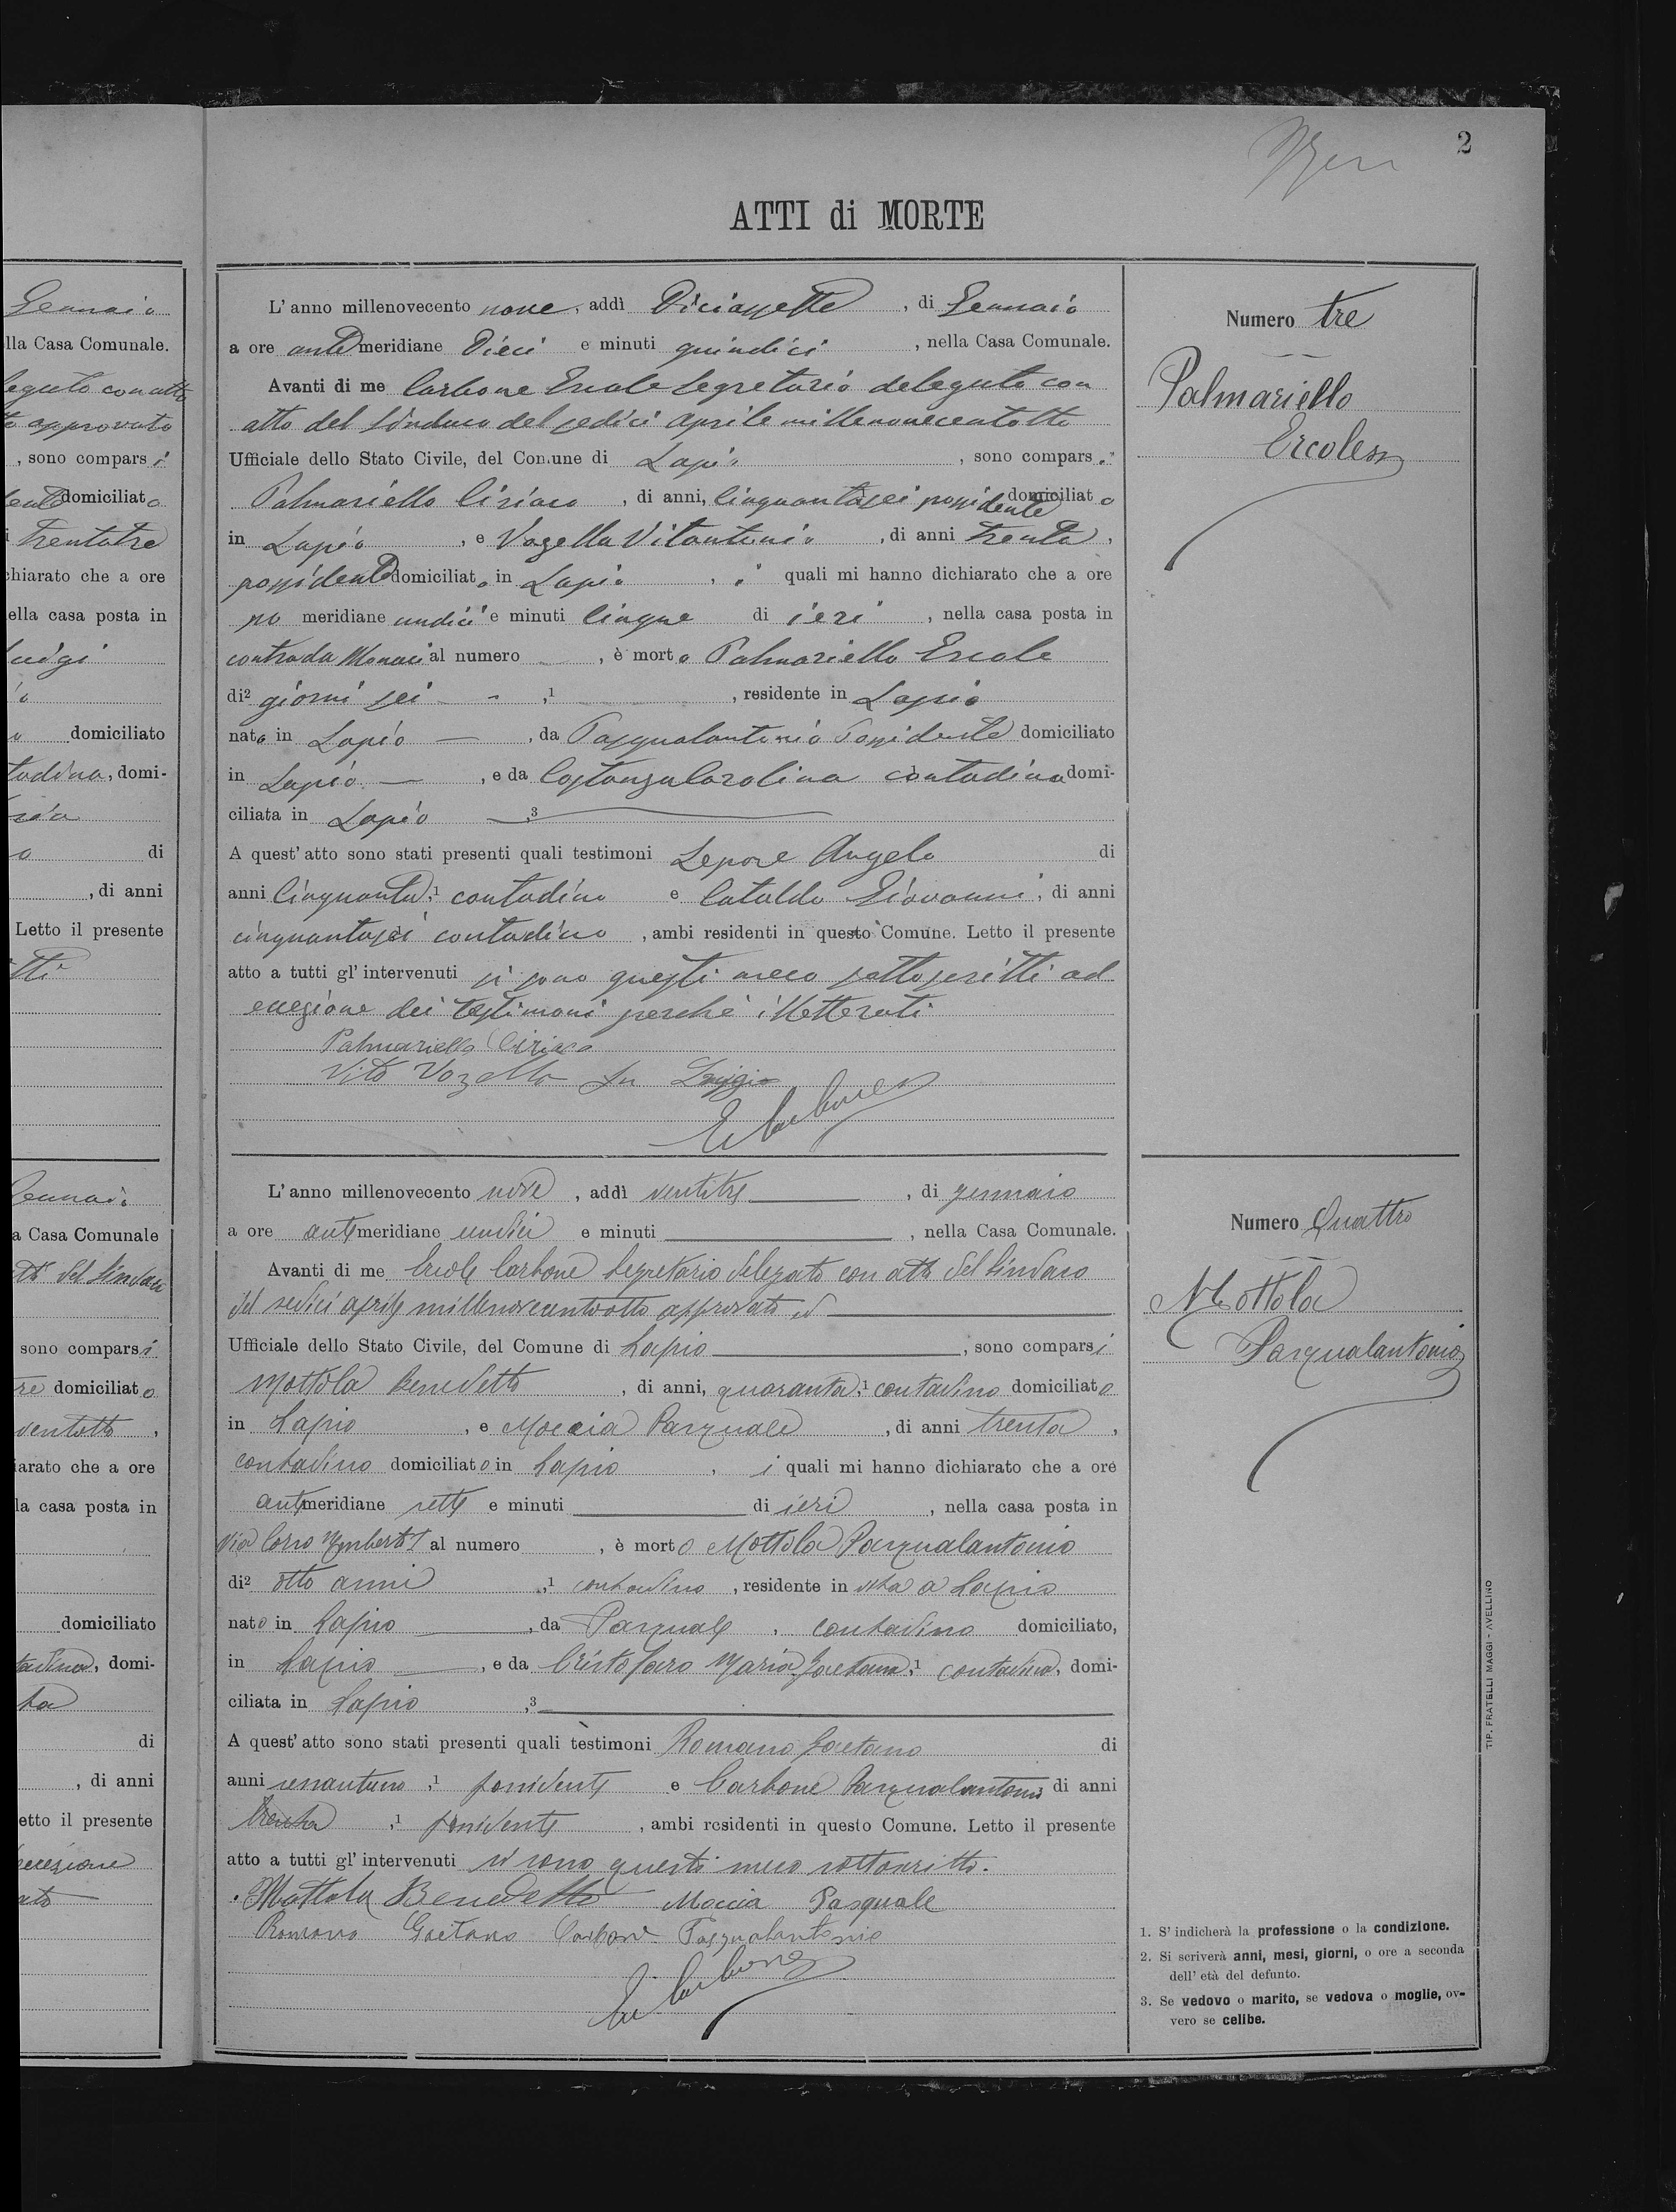 2
ATTI di MORTE
Gennaio
lla Casa Comunale.
legato con atto
approvato
, sono comparsi
domiciliato
trentatre
chiarato che a ore
ella casa posta in
Luigi
domiciliato
, domi-
di
, di anni
Letto il presente
Gennaio
a Casa Comunale
del Sindaco
sono comparsi
domiciliato
ventotto ,
iarato che a ore
la casa posta in
domiciliato
, domi-
di
, di anni
etto il presente
eccezione
L'anno millenovecento nove, addì Diciassette , di Gennaio
a ore antemeridiane Dieci e minuti quindici , nella Casa Comunale.
Avanti di me Carbone Ercole Segretario delegato con
atto del Sindaco del sedici Aprile millenovecentotto
Ufficiale dello Stato Civile, del Comune di Lapio , sono comparsi
Palmariello Ciriaco , di anni, cinquantasei possidente domiciliato
in Lapio , e Vozella Vitantonio , di anni trenta ,
possidente domiciliato in Lapio , i quali mi hanno dichiarato che a ore
po meridiane undici e minuti cinque di ieri , nella casa posta in
contrada Monaci al numero — , è morto Palmariello Ercole
di² giorni sei - ,¹ , residente in Lapio
nato in Lapio — , da Pasqualantonio Possidente domiciliato
in Lapio — , e da Costanza Carolina contadina domi-
ciliata in Lapio —³
A quest'atto sono stati presenti quali testimoni Lepore Angelo di
anni Cinquanta,¹ contadino e Cataldo Giovanni , di anni
cinquantasei contadino , ambi residenti in questo Comune. Letto il presente
atto a tutti gl'intervenuti si sono questi meco sottoscritti ad
eccezione dei testimoni perchè illetterati
Palmariello Ciriaco
Vito Vozella fu
E Carbone
Numero tre
Palmariello
Ercole
L'anno millenovecento nove , addì ventitre , di gennaio
a ore antemeridiane undici e minuti — , nella Casa Comunale.
Avanti di me Ercole Carbone Segretario delegato con atto del Sindaco
del sedici aprile millenovecentootto approvato
Ufficiale dello Stato Civile, del Comune di Lapio — , sono comparsi
Mottola Benedetto , di anni, quaranta,¹ contadino domiciliato
in Lapio , e Moccia Pasquale , di anni trenta ,
contadino domiciliato in Lapio , i quali mi hanno dichiarato che a ore
antimeridiane sette e minuti — di ieri , nella casa posta in
Via Corso Umberto I al numero , è morto Mottola Pasqualantonio
di² otto anni ,¹ contadino , residente in vita a Lapio
nato in Lapio — , da Pasquale , contadino domiciliato,
in Lapio — , e da Cristofaro Maria Gaetana,¹ contadina, domi-
ciliata in Lapio ,³ —
A quest'atto sono stati presenti quali testimoni Romano Gaetano di
anni sessantuno ,¹ possidente e Carbone Pasqualantonio di anni
trenta ,¹ possidente , ambi residenti in questo Comune. Letto il presente
atto a tutti gl'intervenuti si sono questi meco sottoscritto.
Mottola Benedetto Moccia Pasquale
Romano Gaetano Carbone Pasqualantonio
Er Carbone
Numero Quattro
Mottola
Pasqualantonio
1. S'indicherà la professione o la condizione.
2. Si scriverà anni, mesi, giorni, o ore a seconda
dell'età del defunto.
3. Se vedovo o marito, se vedova o moglie, ov-
vero se celibe.
TIP. FRATELLI MAGGI - AVELLINO